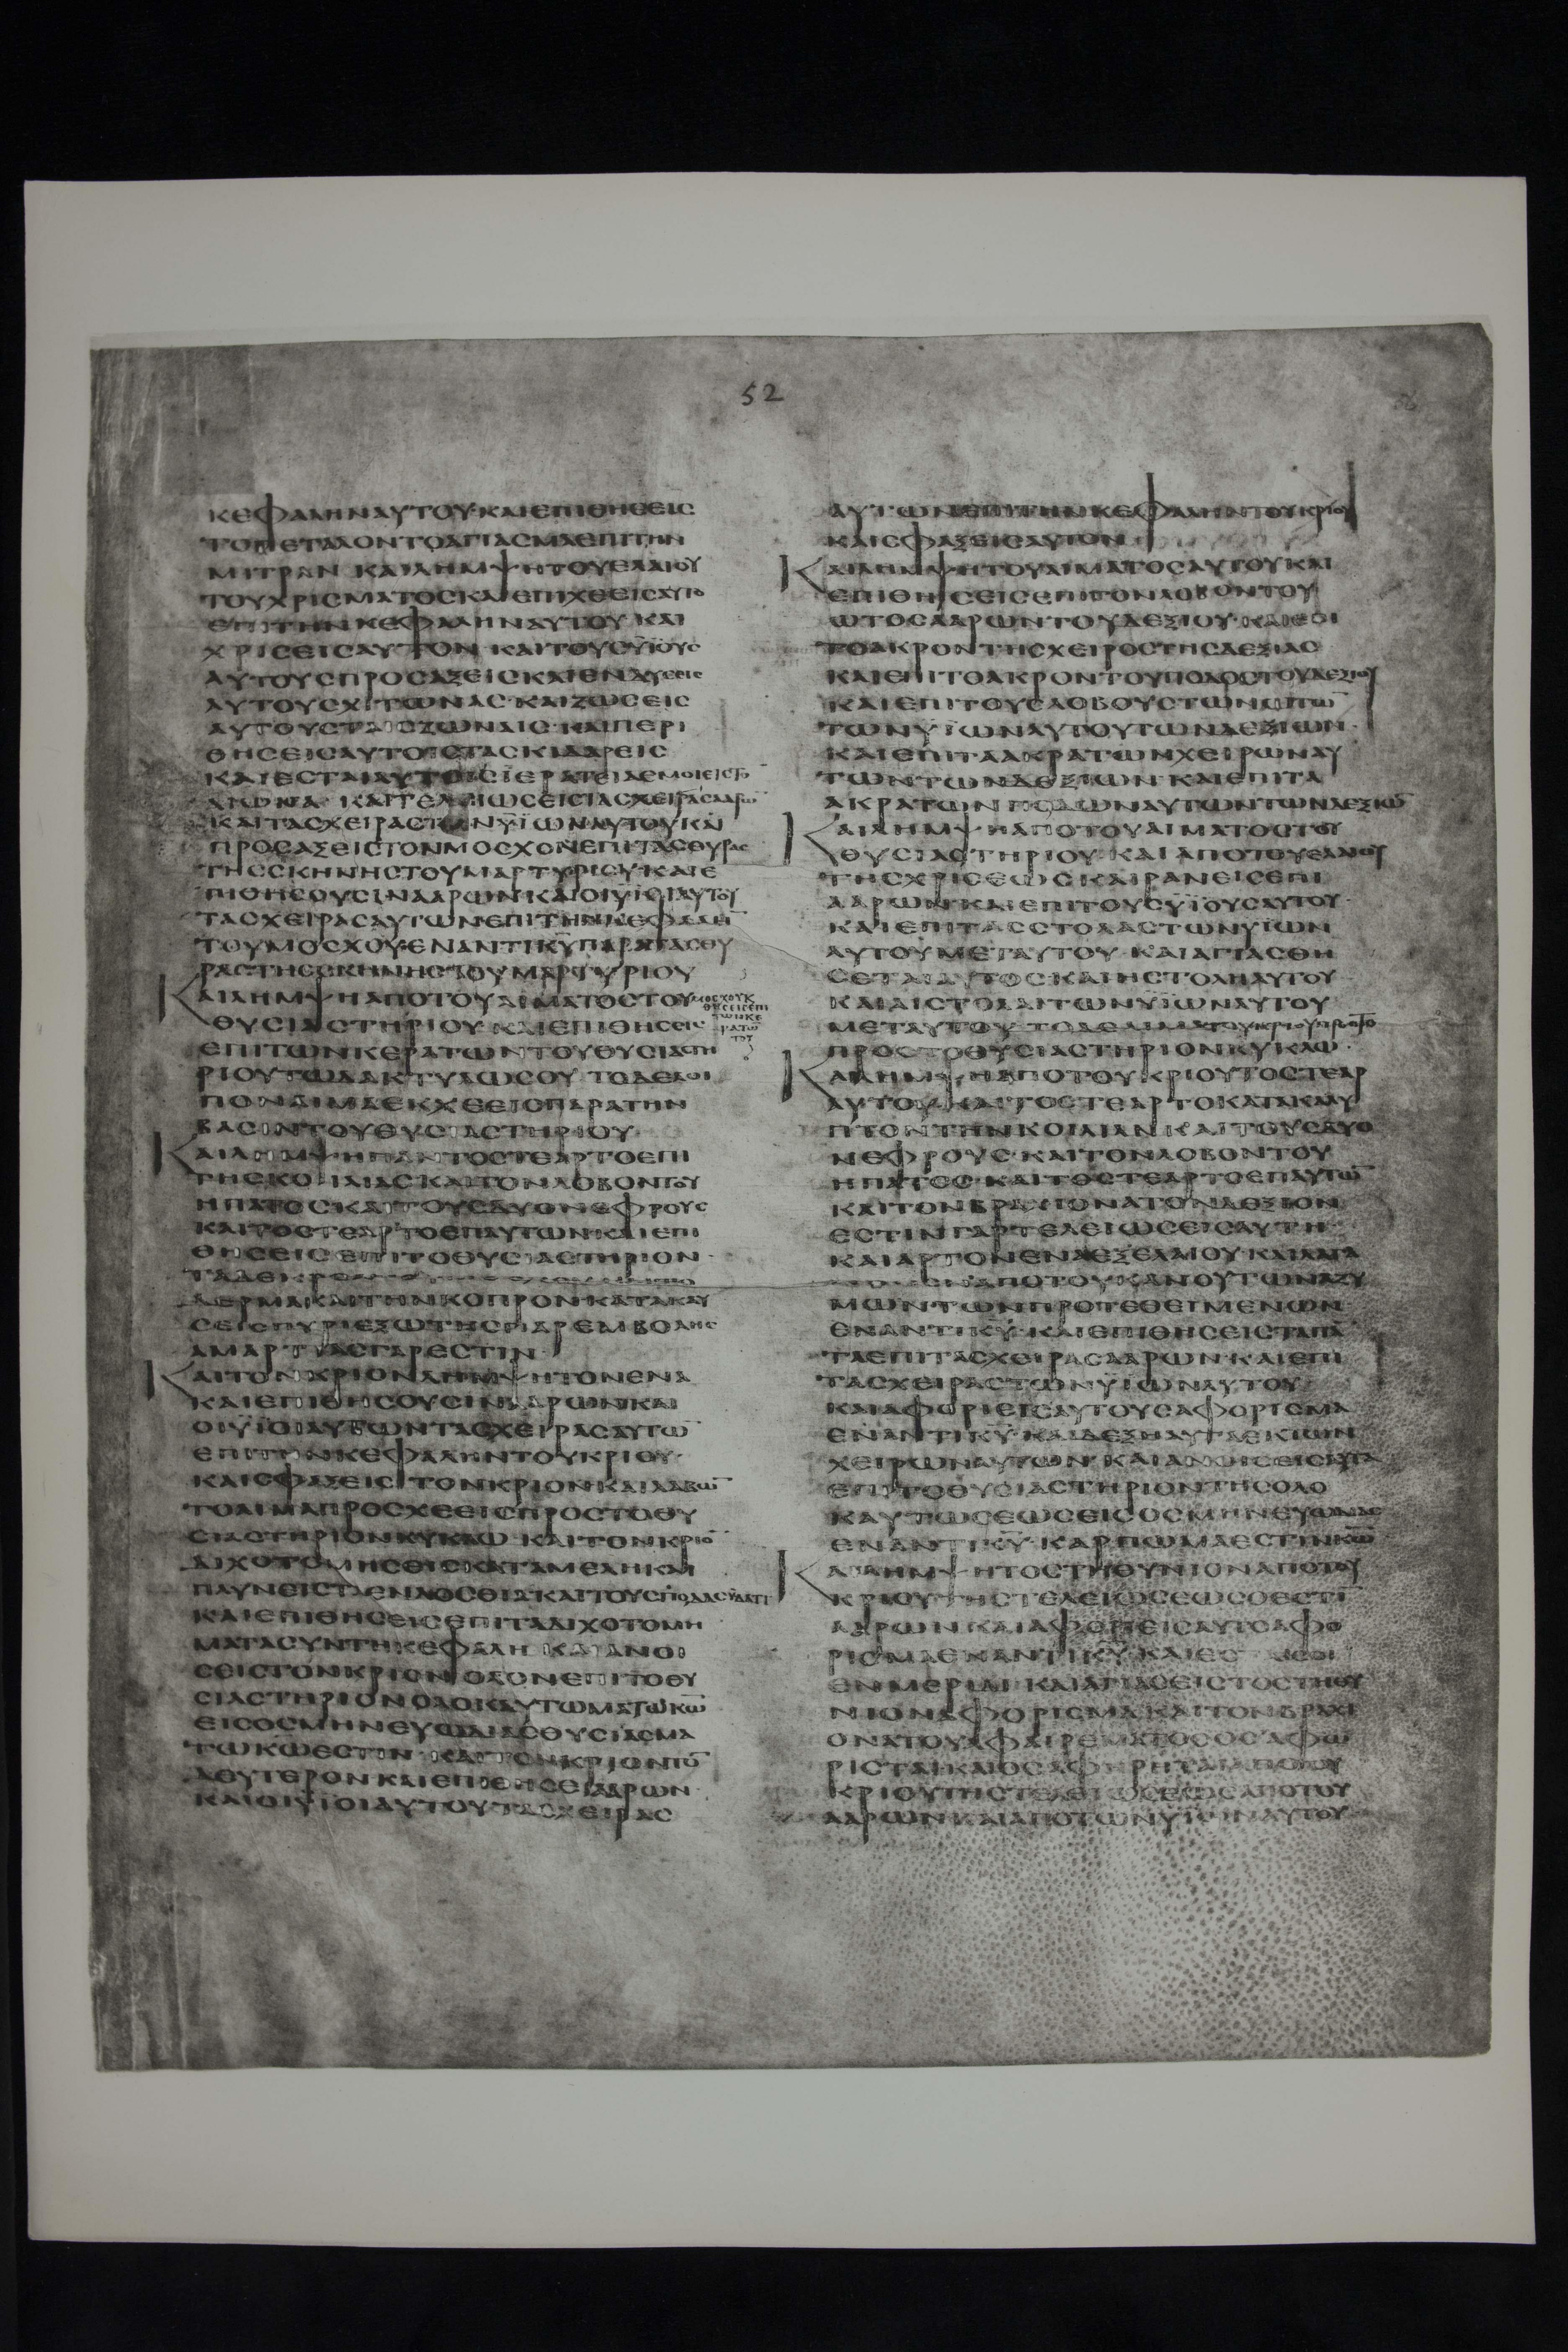 52
ΚΕΦΑΛΗΝΑΥΤΟΥ·ΚΑΙΕΠΙΘΗΘΕΙΣ
ΤΟΠΕΤΑΛΟΝΤΟΑΓΙΑΣΜΑΕΠΙΤΗΝ
ΜΙΤΡΑΝ ΚΑΙΛΗΜΨΗΤΟΥΕΛΑΙΟΥ
ΤΟΥΧΡΙΣΜΑΤΟΣΚΑΙΕΠΙΧΕΕΙΣΑΥΤΟ
ΕΠΙΤΗΝΚΕΦΑΛΗΝΑΥΤΟΥ ΚΑΙ
ΧΡΙΣΕΙΣΑΥΤΟΝ ΚΑΙΤΟΥΣΥΪΟΥΣ
ΑΥΤΟΥΣΠΡΟΣΑΞΕΙΣΚΑΙΕΝΔΥΣΕΙΣ
ΑΥΤΟΥΣΧΙΤΩΝΑΣ·ΚΑΙΖΩΣΕΙΣ
ΑΥΤΟΥΣΤΑΙΣΖΩΝΑΙΣ·ΚΑΙΠΕΡΙ
ΘΗΣΕΙΣΑΥΤΟΙΣΤΑΣΚΙΔΑΡΕΙΣ
ΚΑΙΕΣΤΑΙΑΥΤΟΙΣΪΕΡΑΤΕΙΑΕΜΟΙΕΙΣΤΟ̅
ΑΙΩΝΑ· ΚΑΙΤΕΛΕΙΩΣΕΙΣΤΑΣΧΕΙΡΑΣΑΑΡΩ̅
ΚΑΙΤΑΣΧΕΙΡΑΣΤΩΝΥΪΩΝΑΥΤΟΥΚΑΙ
ΠΡΟΣΑΞΕΙΣΤΟΝΜΟΣΧΟΝΕΠΙΤΑΣΘΥΡΑΣ
ΤΗΣΣΚΗΝΗΣΤΟΥΜΑΡΤΥΡΙΟΥ·ΚΑΙΕ
ΠΙΘΗΣΟΥΣΙΝΑΑΡΩΝΚΑΙΟΙΥΪΟΙΑΥΤΟΥ
ΤΑΣΧΕΙΡΑΣΑΥΤΩΝΕΠΙΤΗΝΚΕΦΑΛΗ̅
ΤΟΥΜΟΣΧΟΥ·ΕΝΑΝΤΙΚΥ̅ΠΑΡΑΤΑΣΘΥ
ΡΑΣΤΗΣΣΚΗΝΗΣΤΟΥΜΑΡΤΥΡΙΟΥ
ΚΑΙΛΗΜΨΗΑΠΟΤΟΥΑΙΜΑΤΟΣΤΟΥ
ΘΥΣΙΑΣΤΗΡΙΟΥ·ΚΑΙΕΠΙΘΗΣΕΙΣ
ΕΠΙΤΩΝΚΕΡΑΤΩΝΤΟΥΘΥΣΙΑΣΤΗ
ΡΙΟΥΤΩΔΑΚΤΥΛΩΣΟΥ ΤΟΔΕΛΟΙ
ΠΟΝΑΙΜΑΕΚΧΕΕΙΣΠΑΡΑΤΗΝ
ΒΑΣΙΝΤΟΥΘΥΣΙΑΣΤΗΡΙΟΥ
ΚΑΙΛΗΜΨΗΠΑΝΤΟΣΤΕΑΡΤΟΕΠΙ
ΤΗΣΚΟΙΛΙΑΣΚΑΙΤΟΝΛΟΒΟΝΤΟΥ
ΗΠΑΤΟΣΚΑΙΤΟΥΣΔΥΟΝΕΦΡΟΥΣ
ΚΑΙΤΟΣΤΕΑΡΤΟΕΠΑΥΤΩΝΚΑΙΕΠΙ
ΘΗΣΕΙΣΕΠΙΤΟΘΥΣΙΑΣΤΗΡΙΟΝ
ΔΕΡΜΑΚΑΙΤΗΝΚΟΠΡΟΝΚΑΤΑΚΑΥ
ΣΕΙΣΠΥΡΙΕΞΩΤΗΣΠΑΡΕΜΒΟΛΗΣ
ΑΜΑΡΤΙΑΣΓΑΡΕΣΤΙΝ
ΚΑΙΤΟΝΚΡΙΟΝΛΗΜΨΗΤΟΝΕΝΑ
ΚΑΙΕΠΙΘΗΣΟΥΣΙΝΑΑΡΩΝΚΑΙ
ΟΙΥΪΟΙΑΥΤΩΝΤΑΣΧΕΙΡΑΣΑΥΤΩ̅
ΕΠΙΤΗΝΚΕΦΑΛΗΝΤΟΥΚΡΙΟΥ·
ΚΑΙΣΦΑΞΕΙΣΤΟΝΚΡΙΟΝΚΑΙΛΑΒΩ̅
ΤΟΑΙΜΑΠΡΟΣΧΕΕΙΣΠΡΟΣΤΟΘΥ
ΣΙΑΣΤΗΡΙΟΝΚΥΚΛΩ·ΚΑΙΤΟΝΚΡΙΟ̅
ΔΙΧΟΤΟΜΗΣΕΙΣΚΑΤΑΜΕΛΗΚΑΙ
ΠΛΥΝΕΙΣΤΑΕΝΔΟΣΘΙΑΚΑΙΤΟΥΣΠΟΔΑΣΫΔΑΤΙ
ΚΑΙΕΠΙΘΗΣΕΙΣΕΠΙΤΑΔΙΧΟΤΟΜΗ
ΜΑΤΑΣΥΝΤΗΚΕΦΑΛΗ ΚΑΙΑΝΟΙ
ΣΕΙΣΤΟΝΚΡΙΟΝΟΛΟΝΕΠΙΤΟΘΥ
ΣΙΑΣΤΗΡΙΟΝΟΛΟΚΑΥΤΩΜΑΤΩΚΩ̅
ΕΙΣΟΣΜΗΝΕΥΩΔΙΑΣΘΥΣΙΑΣΜΑ
ΤΩΚΩΕΣΤΙΝ·ΚΑΙΤΟΝΚΡΙΟΝΤΟ̅
ΔΕΥΤΕΡΟΝΚΑΙΕΠΙΘΗΣΕΙΑΑΡΩΝ·
ΚΑΙΟΙΥΪΟΙΑΥΤΟΥΤΑΣΧΕΙΡΑΣ
ΑΥΤΩΝΕΠΙΤΗΝΚΕΦΑΛΗΝΤΟΥΚΡΙΟΥ
ΚΑΙΣΦΑΞΕΙΣΑΥΤΟΝ
ΚΑΙΛΗΜΨΗΤΟΥΑΙΜΑΤΟΣΑΥΤΟΥΚΑΙ
ΕΠΙΘΗΣΕΙΣΕΠΙΤΟΝΛΟΒΟΝΤΟΥ
ΩΤΟΣΑΑΡΩΝΤΟΥΔΕΞΙΟΥ·ΚΑΙΕΠΙ
ΤΟΑΚΡΟΝΤΗΣΧΕΙΡΟΣΤΗΣΔΕΞΙΑΣ
ΚΑΙΕΠΙΤΟΑΚΡΟΝΤΟΥΠΟΔΟΣΤΟΥΔΕΞΙΟΥ
ΚΑΙΕΠΙΤΟΥΣΛΟΒΟΥΣΤΩΝΩΤΩ̅
ΤΩΝΥΪΩΝΑΥΤΟΥΤΩΝΔΕΞΙΩΝ·
ΚΑΙΕΠΙΤΑΑΚΡΑΤΩΝΧΕΙΡΩΝΑΥ
ΤΩΝΤΩΝΔΕΞΙΩΝ·ΚΑΙΕΠΙΤΑ
ΑΚΡΑΤΩΝΠΟΔΩΝΑΥΤΩΝΤΩΝΔΕΞΙΩ̅
ΚΑΙΛΗΜΨΗΑΠΟΤΟΥΑΙΜΑΤΟΣΤΟΥ
ΘΥΣΙΑΣΤΗΡΙΟΥ·ΚΑΙΑΠΟΤΟΥΕΛΑΙΟΥ
ΤΗΣΧΡΙΣΕΩΣΚΑΙΡΑΝΕΙΣΕΠΙ
ΑΑΡΩΝΚΑΙΕΠΙΤΟΥΣΥΪΟΥΣΑΥΤΟΥ·
ΚΑΙΕΠΙΤΑΣΣΤΟΛΑΣΤΩΝΥΪΩΝ
ΑΥΤΟΥΜΕΤΑΥΤΟΥ·ΚΑΙΑΓΙΑΣΘΗ
ΣΕΤΑΙΑΥΤΟΣΚΑΙΗΣΤΟΛΗΑΥΤΟΥ·
ΚΑΙΑΙΣΤΟΛΑΙΤΩΝΥΪΩΝΑΥΤΟΥ
ΜΕΤΑΥΤΟΥ·ΤΟΔΕΑΙΜΑΤΟΥΚΡΙΟΥΠΡΟΣΧΕΕΙΣ
ΠΡΟΣΤΟΘΥΣΙΑΣΤΗΡΙΟΝΚΥΚΛΩ·
ΚΑΙΛΗΜΨΗΑΠΟΤΟΥΚΡΙΟΥΤΟΣΤΕΑΡ
ΑΥΤΟΥΚΑΙΤΟΣΤΕΑΡΤΟΚΑΤΑΚΑΛΥ
ΠΤΟΝΤΗΝΚΟΙΛΙΑΝΚΑΙΤΟΥΣΔΥΟ
ΝΕΦΡΟΥΣ·ΚΑΙΤΟΝΛΟΒΟΝΤΟΥ
ΗΠΑΤΟΣ·ΚΑΙΤΟΣΤΕΑΡΤΟΕΠΑΥΤΩ̅
ΚΑΙΤΟΝΒΡΑΧΙΟΝΑΤΟΝΔΕΞΙΟΝ
ΕΣΤΙΝΓΑΡΤΕΛΕΙΩΣΕΙΣΑΥΤΗ·
ΚΑΙΑΡΤΟΝΕΝΑΕΞΕΛΑΙΟΥ·ΚΑΙΛΑΓΑ
ΑΠΟΤΟΥΚΑΝΟΥΤΩΝΑΖΥ
ΜΩΝΤΩΝΠΡΟΤΕΘΕΙΜΕΝΩΝ
ΕΝΑΝΤΙΚΥ̅·ΚΑΙΕΠΙΘΗΣΕΙΣΤΑΠΑ̅
ΤΑΕΠΙΤΑΣΧΕΙΡΑΣΑΑΡΩΝ·ΚΑΙΕΠΙ
ΤΑΣΧΕΙΡΑΣΤΩΝΥΪΩΝΑΥΤΟΥ
ΚΑΙΑΦΩΡΙΕΙΣΑΥΤΟΥΣΑΦΟΡΙΣΜΑ
ΕΝΑΝΤΙΚΥ̅·ΚΑΙΔΕΞΗΑΥΤΑΕΚΤΩΝ
ΧΕΙΡΩΝΑΥΤΩΝ·ΚΑΙΑΝΟΙΣΕΙΣΑΥΤΑ
ΕΠΙΤΟΘΥΣΙΑΣΤΗΡΙΟΝΤΗΣΟΛΟ
ΚΑΥΤΩΣΕΩΣΕΙΣΟΣΜΗΝΕΥΩΔΙΑΣ
ΕΝΑΝΤΙΚΥ̅·ΚΑΡΠΩΜΑΕΣΤΙΝΚΩ̅
ΚΑΙΛΗΜΨΗΤΟΣΤΗΘΥΝΙΟΝΑΠΟΤΟΥ
ΚΡΙΟΥΤΗΣΤΕΛΕΙΩΣΕΩΣΟΕΣΤΙ̅
ΑΑΡΩΝΚΑΙΑΦΟΡΙΕΙΣΑΥΤΟΑΦΟ
ΡΙΣΜΑΕΝΑΝΤΙΚΥ̅·
ΕΝΜΕΡΙΔΙ·ΚΑΙΑΓΙΑΣΕΙΣΤΟΣΤΗΘΥ
ΝΙΟΝΑΦΟΡΙΣΜΑΚΑΙΤΟΝΒΡΑΧΙ
ΟΝΑΤΟΥΑΦΑΙΡΕΜΑΤΟΣΟΣΑΦΩ
ΡΙΣΤΑΙΚΑΙΟΣΑΦΗΡΗΤΑΙΑΠΟΤΟΥ
ΚΡΙΟΥΤΗΣΤΕΛΕΙΩΣΕΩΣΑΠΟΤΟΥ
ΑΑΡΩΝΚΑΙΑΠΟΤΩΝΥΪΩΝΑΥΤΟΥ